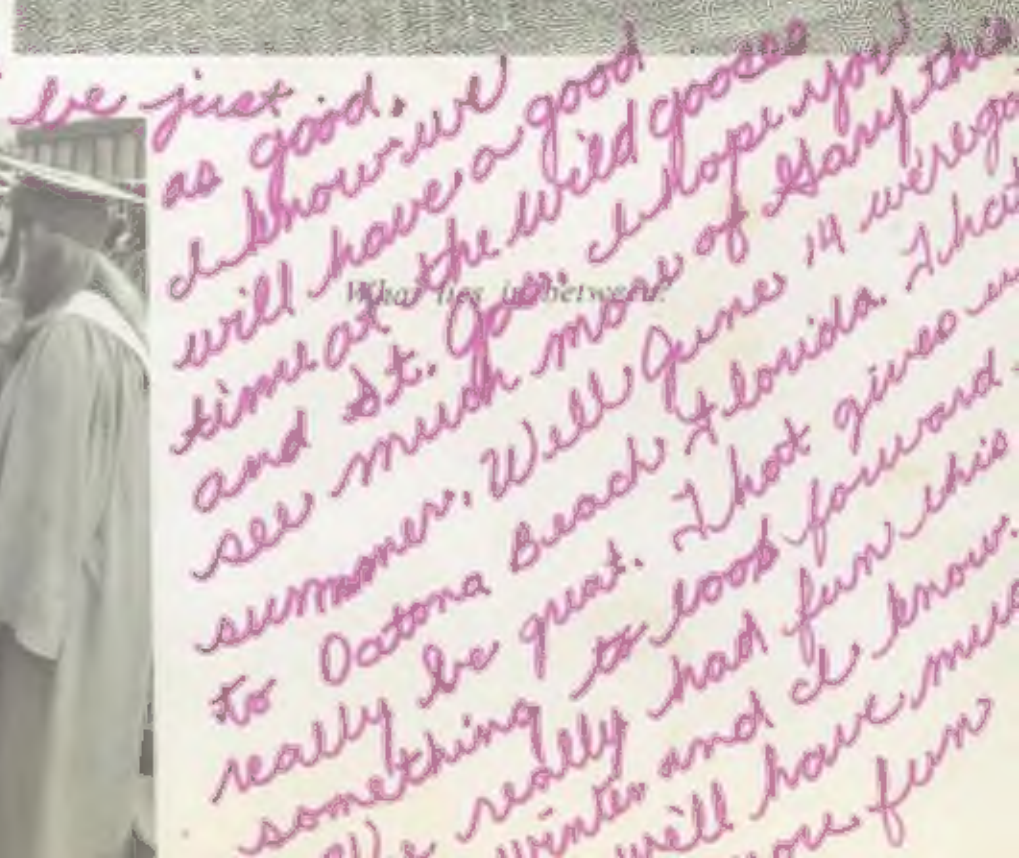 be just
as good.
I know we
will have a good
time at the wild goose
and St. Joe. I hope you
see much more of Gary this
summer. Well June 14 were go
to Oatona Beach Florida. That
really be great. That gives us
something to look forward
We really had fun this
winter and I know.
we'll have much
more fun
What lies in between?